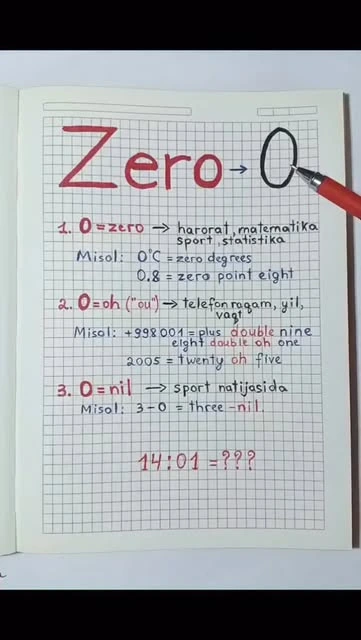 Zero → 0
1. 0 = zero → harorat, matematika
sport, statistika
Misol: 0°C = zero degrees
0.8 = zero point eight
2. 0 = oh ("ou") → telefon raqam, yil,
vaqt
Misol: +998 001 = plus double nine
eight double oh one
2005 = twenty oh five
3. 0 = nil → sport natijasida
Misol: 3-0 = three -nil.
14:01 = ???